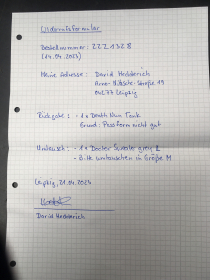 Widerrufsformular
Bestellnummer: 2221328
(14.04.2023)
Meine Adresse: David Hedderich
Arno-Nitzsche-Straße 19
04277 Leipzig
Rückgabe: - 1x Death Nun Tank
Grund: Passform nicht gut
Umtausch: - 1x Doctor Sweater grey L
- Bitte umtauschen in Größe M
Leipzig, 21.04.2023
David Hedderich